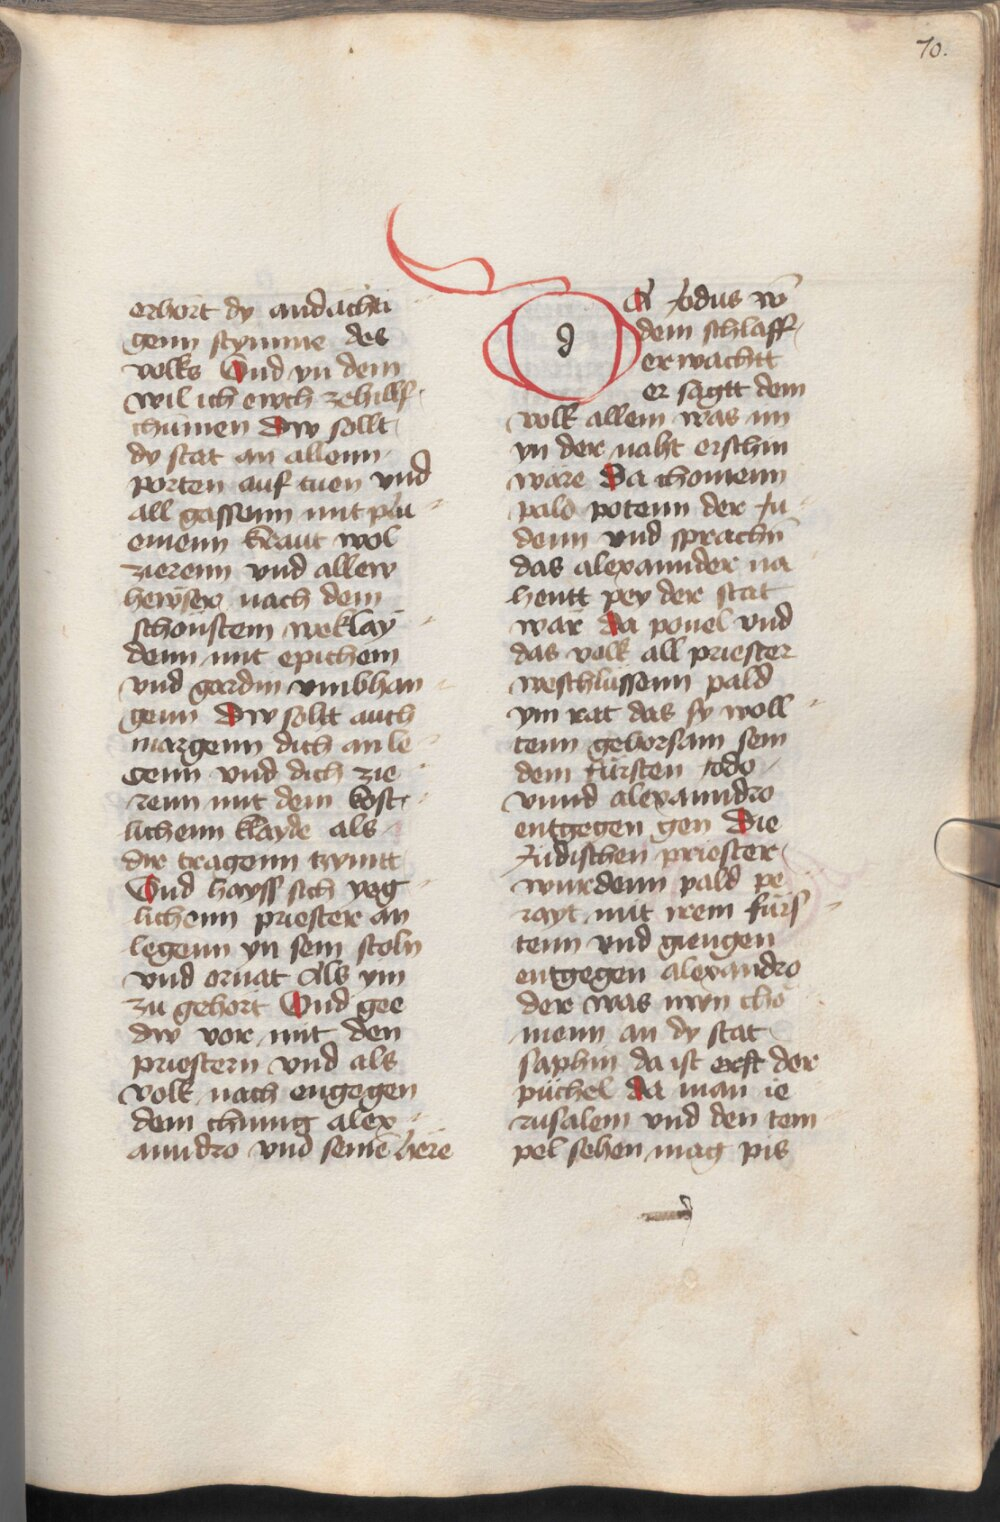 70.
erhört dy andächti
genn stymme des
volks Vnd yn dem
wil ich ewch zehilff
chumen Dw sollt
dy stat an allenn
porten auf tuen vnd
all gassenn mit plu
emenn kraut wol
zierenn vnd allew
hewser nach dem
schönstem weklay
denn mit epichem
vnd gardin vmbhan
genn Dw solt auch
margenn dich an le
genn vnd dich zie
renn mit dem kost
lichenn klayde als
dir tragenn tzymtt
Vnd hayss sich yeg
lichenn priester an
legenn yn sem stoln
vnd ornat Als ym
zu gehört Vnd gee
dw vor mit den
priestern vnd als
volk nach engegen
dem chunig alex
anndro vnd seinē here
d
A Jodus vō
dem schlaff
erwachtt
er sagtt dem
volk allem was im
yn der naht erschin
wäre Da chomenn
pald potenn der Ju
denn vnd sprachn̄
das alexannder na
hentt pey der stat
war Da pouel vnd
das volk all priester
weschlussenn pald
ym rat das sy woll
tenn gehorsam sein
dem fürsten Jodo
vnnd alexanndro
entgegen gen Die
Judischen priester
wurdenn pald pe
rayt mit irem fürs
tenn vnd giengen
entgegen alexandro
der was nwn cho
menn an dy stat
saphin da ist erst der
püchel da man ie
rusalem vnd den tem
pel sehen mag pis